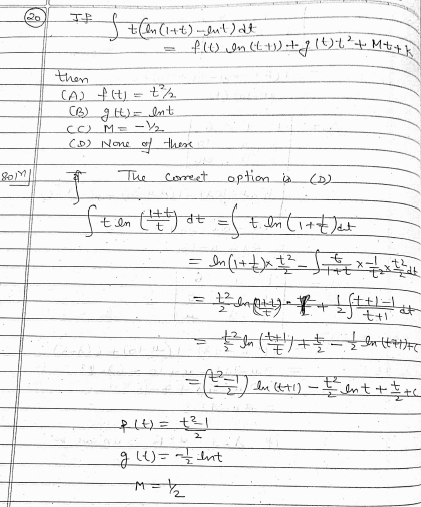 20 If ∫ t(ln(1+t) - lnt) dt
= f(t) ln(t+1) + g(t) t² + Mt + k
then
(A) f(t) = t²/2
(B) g(t) = lnt
(C) M = -1/2
(D) None of these
The correct option is (D)
∫ t ln((1+t)/t) dt = ∫ t ln(1+1/t) dt
= ln(1+1/t) × t²/2 - ∫ t/(1+t) × -1/t² × t²/2 dt
= t²/2 ln((1+t)/t) + 1/2 ∫ (t+1-1)/(t+1) dt
= t²/2 ln((t+1)/t) + t/2 - 1/2 ln(t+1) + c
= ((t²-1)/2) ln(t+1) - t²/2 lnt + t/2 + c
f(t) = (t²-1)/2
g(t) = -1/2 lnt
M = 1/2